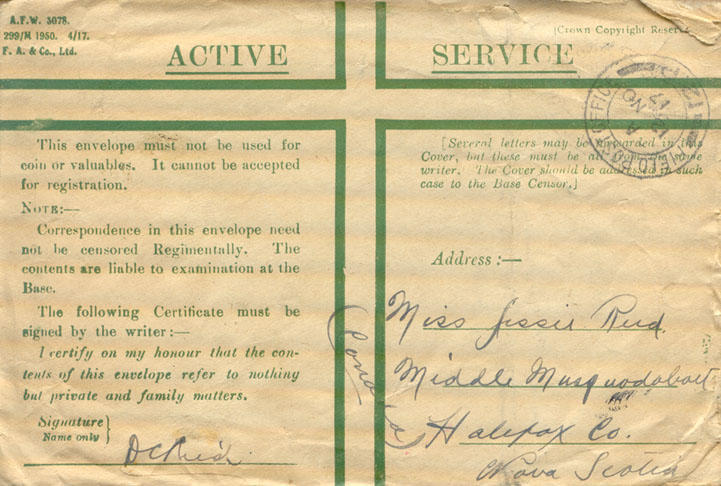 A.F.W. 3078.
299/M 1950. 4/17.
F. A. & Co., Ltd.
[Crown Copyright Reserve
ACTIVE SERVICE
FIELD POST OFFICE
A
NO
17
This envelope must not be used for
coin or valuables. It cannot be accepted
for registration.
NOTE:—
Correspondence in this envelope need
not be censored Regimentally. The
contents are liable to examination at the
Base.
The following Certificate must be
signed by the writer:—
I certify on my honour that the con-
tents of this envelope refer to nothing
but private and family matters.
Signature
Name only
DCReid
[Several letters may be forwarded in this
Cover, but these must be all from the same
writer. The Cover should be addressed in such
case to the Base Censor.]
Address:—
Miss Jessie Reid.
Middle Musquodoboit
Halifax Co.
Nova Scotia
Canada